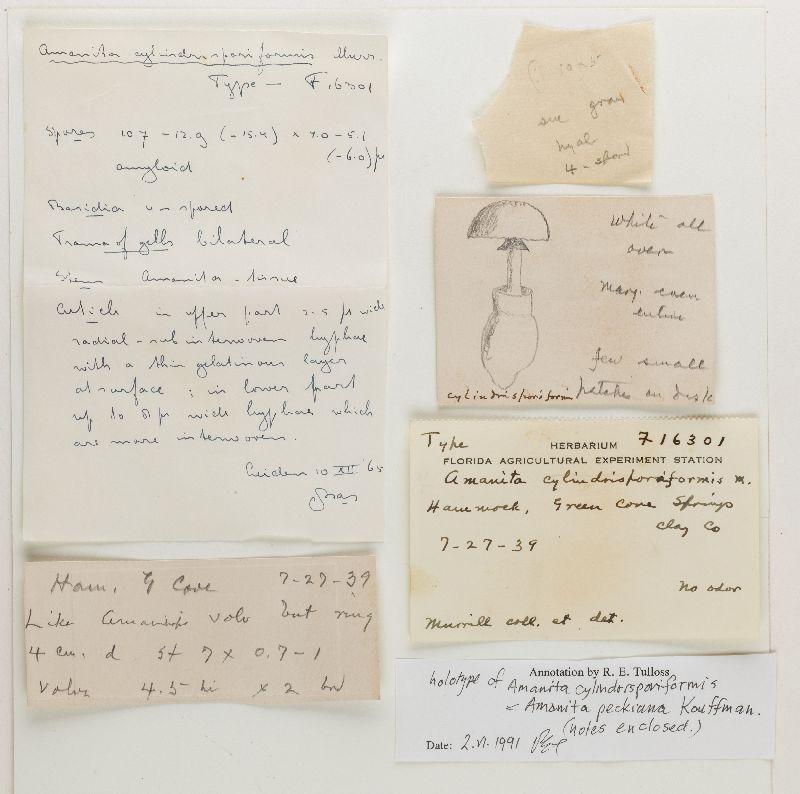 Amanita cylindrisporiformis Murr.
Type — F 16301
Spores 10.7 – 12.9 (– 15.4) × 4.0 – 5.1
(– 6.0) µ
amyloid
Basidia 4-spored
Trama of gills bilateral
Stem Amanita - tissue
Cuticle in upper part 2-5 µ wide
radial - subinterwoven hyphae
with a thin gelatinous layer
at surface ; in lower part
up to 8 µ wide hyphae which
are more interwoven.
Leiden 10 XII '65
Bas
Ham, G Cove 7-27-39
Like Amanitops volv but ring
4 cm. d st 7 x 0.7-1
volva 4.5 hi x 2 br
10 x 5
sue gran
hyal
4 - spored
White all
over
Marg. even
entire
few small
patches on disk
cylindrisporiformis
Type HERBARIUM F16301
FLORIDA AGRICULTURAL EXPERIMENT STATION
Amanita cylindrisporiformis m.
Hammock, Green Cove Springs
Clay Co
7-27-39
No odor
Murrill coll. et det.
Annotation by R. E. Tulloss
holotype of Amanita cylindrisporiformis
= Amanita peckiana Kauffman.
(notes enclosed.)
Date: 2.VI.1991